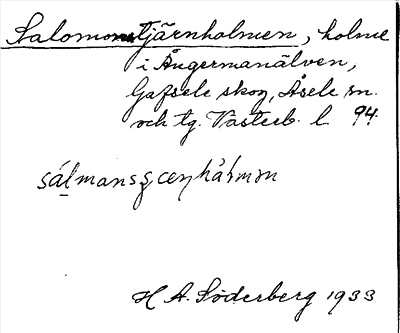 Salomonstjärnholmen, holme
i Ångermanälven,
Gafsele skog, Åsele sn.
och tg. Västerb. l. 94.
H A. Söderberg 1933